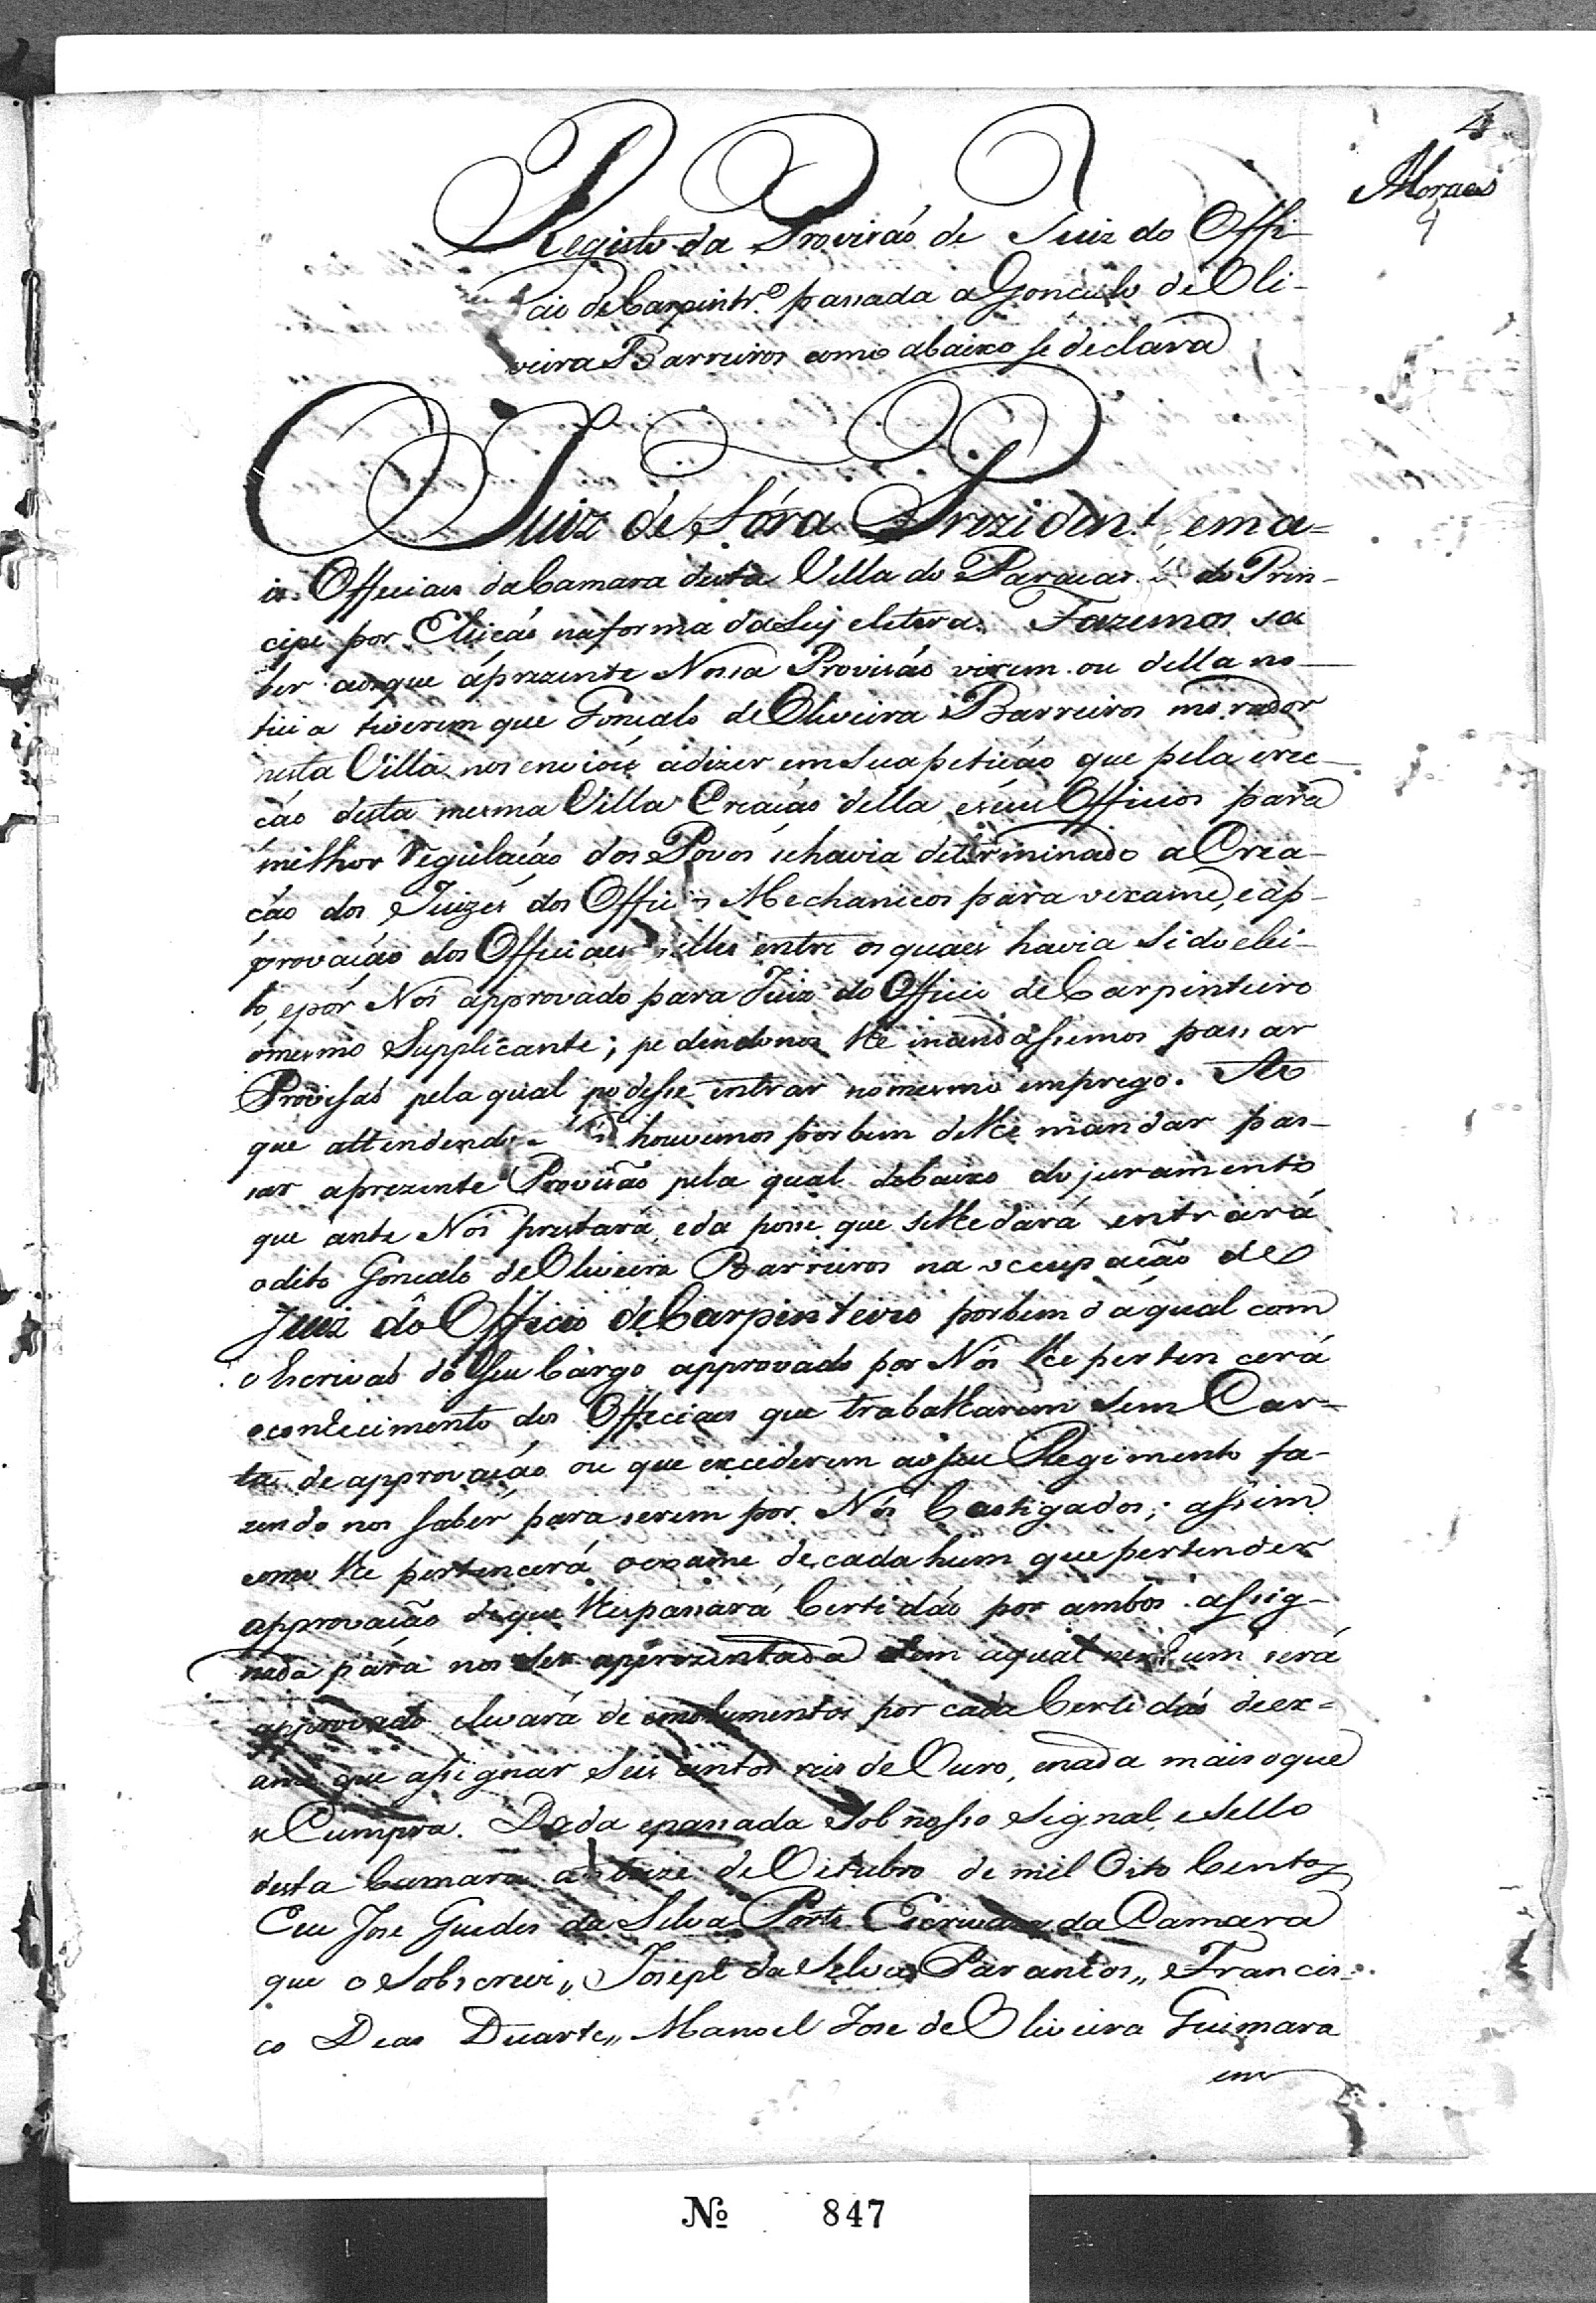 4
Moraes
Registo da Provizaó de Juiz do Offi-
cio de Carpintrº. passada a Gonçalo de Oli-
veira Barreiros como abaixo se declara
O Juiz de Fóra Prezidente. ema=
is Officiaes da Camara desta Villa do Paracatú do Prin-
cipe por Eleicáo na forma da Ley etetera. Fazemos sa
ber aos que á prezente Nossa Provisáo virem ou della no-
ticia tiverem que Gonçalo de Oliveira Barreiros morador
nesta Villa nos enviou adizer em sua peticáo que pela erec-
cáo desta mesma Villa Creacáo della, e seus Officios para
milhor Regulacáo dos Povos se havia determinado a Crea-
cáo dos Juizes dos Officios Mechanicos para o exame, e ap-
provacáo dos Officiaes delles entre os quaes havia sido elei-
to, e por Nós approvado para Juiz do Officio de Carpinteiro
o mesmo Supplicante; pedindonos lhe mandassemos passar
Provisaó pela qual podesse entrar no mesmo emprego. Ao
que attendendo houvemos por bem de lhe mandar pas-
sar a prezente Provisão pela qual debaixo do juramento
que ante Nós prestará, e da posse que se lhe dará entrará
o dito Gonçalo de Oliveira Barreiros na occupação de
Juiz do Officio de Carpinteiro por bem da qual com
o Escrivaó do Seu Cargo approvado por Nós lhe pertencerá
o conhecimento dos Officiaes que trabalharem sem Car=
ta de approvacáo ou que excederem ao seu Regimento fa-
zendo nos saber para serem por Nós Castigados; assim
como lhe pertencerá o exame de cada hum que pertender
approvacão de que lhe passará Certidáo por ambos assig-
nada pára nos ser aprezentada sem a qual nenhum será
approvado e levará de emolumentos por cada Certidáo de ex=
ame que assignar Seis centos reis de Ouro, e nada mais o que
se Cumpra. Dada e passada Sob nosso Signal, e Sello
desta Camara aos treze de Oitubro de mil Oito Centos
Eu Jose Guedes da Silva Porto Escrivão da Camara
que o Sobscrevi,, Joseph da Silva Paranhos,, Francis=
co Dias Duarte,, Manoel Jose de Oliveira Guimara
ens
No 847